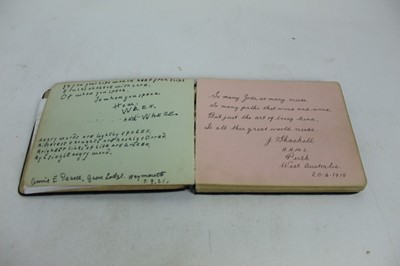 lips would keep from slips
things observe with care,
Of whom you speak,
To whom you speak,
How:
WHEN.
and WHERE.
Angry words are lightly spoken,
Bitterest thoughts are rashly stirred,
Brightest links of life are broken,
By single angry word.
Annie E Lodge, Weymouth
7.9.21.
So many Gods so many creeds
So many paths that wind and wind
That just the art of being kind,
Is all this great world needs
J. Shackell
Perth
West Australia
20-6-1918